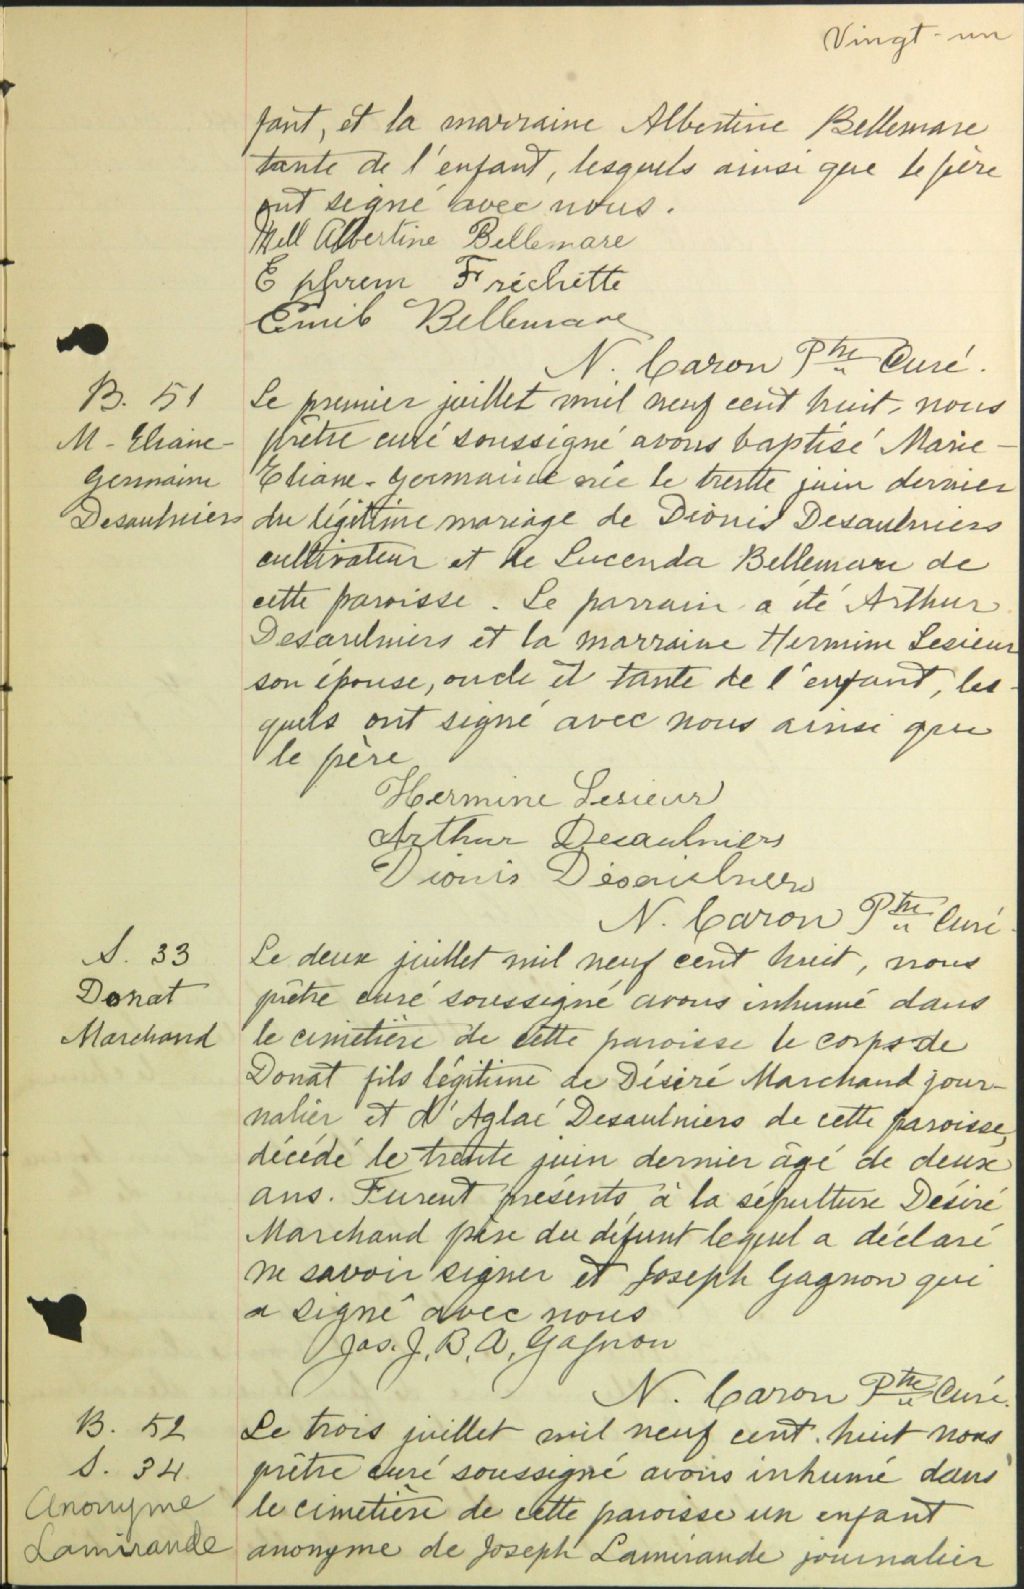 Vingt-un
fant, et la marraine Albertine Bellemare
tante de l'enfant, lesquels ainsi que le père
ont signé avec nous.
Mell Albertine Bellemare
Ephrem Fréchette
Emile Bellemare
N. Caron Ptre Curé.
B. 51
M-Eliane-
Germaine
Desaulniers
Le premier juillet mil neuf cent huit, nous
prêtre curé soussigné avons baptisé Marie-
Eliane-Germaine née le trente juin dernier
du légitime mariage de Dionis Desaulniers
cultivateur et de Lucenda Bellemare de
cette paroisse. Le parrain a été Arthur
Desaulniers et la marraine Hermine Lesieur
son épouse, oncle et tante de l'enfant, les-
quels ont signé avec nous ainsi que
le père
Hermine Lesieur
Arthur Desaulniers
Dionis Désaulniers
N. Caron Ptre Curé.
S. 33
Donat
Marchand
Le deux juillet mil neuf cent huit, nous
prêtre curé soussigné avons inhumé dans
le cimetière de cette paroisse le corps de
Donat fils légitime de Désiré Marchand jour-
nalier et d'Aglaé Desaulniers de cette paroisse,
décédé le trente juin dernier âgé de deux
ans. Furent présents à la sépulture Désiré
Marchand père du défunt lequel a déclaré
ne savoir signer et Joseph Gagnon qui
a signé avec nous
Jos. J. B. A. Gagnon
N. Caron Ptre Curé.
B. 52
S. 34
Anonyme
Lamirande
Le trois juillet mil neuf cent huit nous
prêtre curé soussigné avons inhumé dans
le cimetière de cette paroisse un enfant
anonyme de Joseph Lamirande journalier